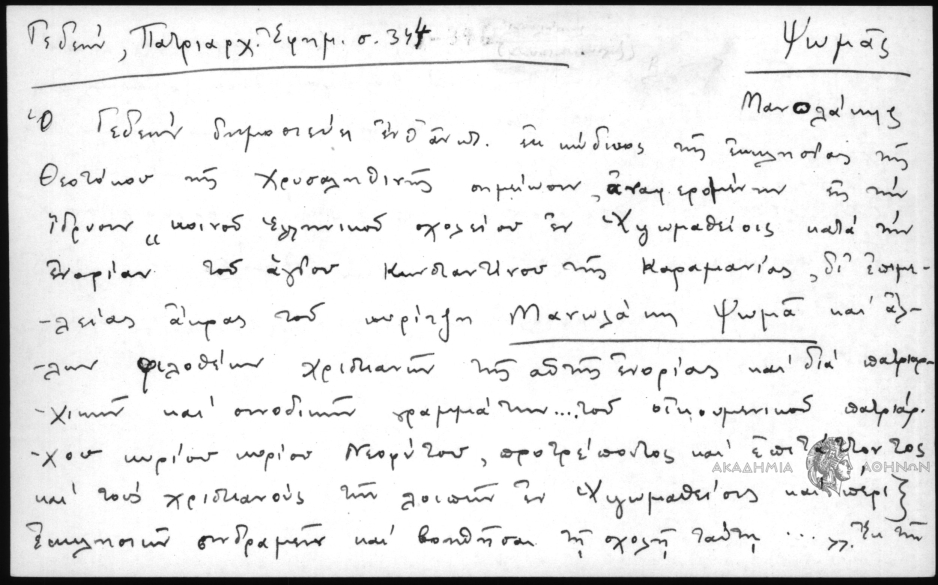 Γεδεών, Πατριαρχ. Ἐφημ. σ. 344
Ψωμᾶς
Μανωλάκης
Ὁ Γεδεὼν δημοσιεύει ἐνθ' ἀνωτ. ἐκ κώδικος τῆς ἐκκλησίας τῆς
Θεοτόκου τῆς Χρυσαληθινῆς σημείωσιν, ἀναφερομένην εἰς τὴν
ἵδρυσιν "κοινοῦ ἑλληνικοῦ σχολείου ἐν Ὑψωμαθείοις κατὰ τὴν
ἐνορίαν τοῦ ἁγίου Κωνσταντίνου τῆς Καραμανίας, δι' ἐπιμε-
-λείας ἄκρας τοῦ κυρίτζη Μανωλάκη Ψωμᾶ καὶ ἄλ-
-λων φιλοθέων χριστιανῶν τῆς αὐτῆς ἐνορίας καὶ διὰ πατριαρ-
-χικῶν καὶ συνοδικῶν γραμμάτων... τοῦ οἰκουμενικοῦ πατριάρ-
-χου κυρίου κυρίου Νεοφύτου, προτρέποντος καὶ ἐπιτάττοντος
καὶ τοὺς χριστιανοὺς τῶν λοιπῶν ἐν Ὑψωμαθείοις καὶ πέριξ
ἐκκλησιῶν συνδραμεῖν καὶ βοηθῆσαι τῇ σχολῇ ταύτῃ ...». Ἐκ τῆς
ΑΚΑΔΗΜΙΑ ΑΘΗΝΩΝ